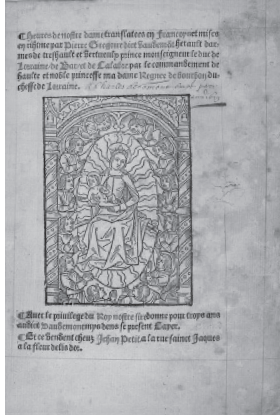 ¶Heures de nostre dame translatees en Francoys et mises
en rithme par Pierre Gregore dict Vaudemõt herault dar
mes de treshault et vertueulx prince monseigneur le duc de
Lorraine de Bar et de Calabre par le commandement de
haulte et noble princesse ma dame Regnee de bourbon du
chesse de Lorraine.
¶Auec le priuilege du Roy nostre sire donne pour troys ans
audict Vaudemont mys dens se present Cayer.
¶Et ce vendent cheuz Jehan Petit a la rue sainct Jaques
a la fleur de lis dor.